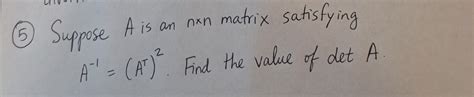 ⑤ Suppose A is an n×n matrix satisfying
A⁻¹ = (Aᵀ)². Find the value of det A.